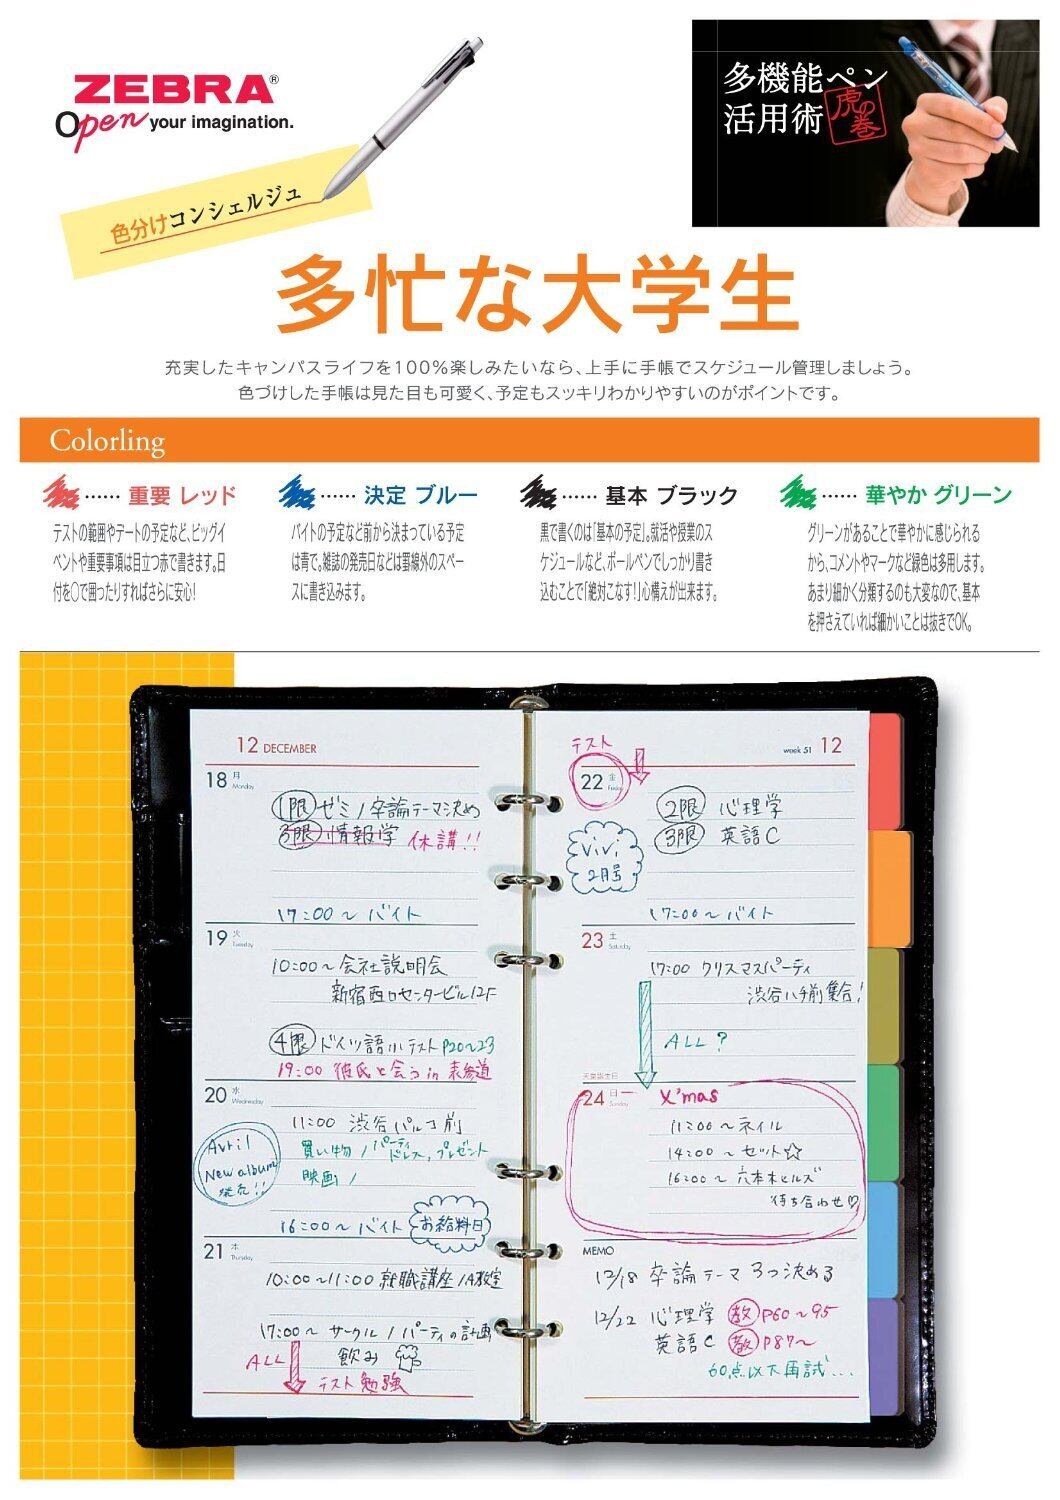 ZEBRA®
Open your imagination.
多機能ペン
活用術
虎の巻
色分けコンシェルジュ
多忙な大学生
充実したキャンパスライフを100%楽しみたいなら、上手に手帳でスケジュール管理しましょう。
色づけした手帳は見た目も可愛く、予定もスッキリわかりやすいのがポイントです。
Colorling
……重要 レッド
テストの範囲やデートの予定など、ビッグイ
ベントや重要事項は目立つ赤で書きます。日
付を○で囲ったりすればさらに安心!
……決定 ブルー
バイトの予定など前から決まっている予定
は青で。雑誌の発売日などは罫線外のスペー
スに書き込みます。
……基本 ブラック
黒で書くのは「基本の予定」。就活や授業のス
ケジュールなど、ボールペンでしっかり書き
込むことで「絶対こなす!」心構えが出来ます。
……華やか グリーン
グリーンがあることで華やかに感じられる
から、コメントやマークなど緑色は多用します。
あまり細かく分類するのも大変なので、基本
を押さえていれば細かいことは抜きでOK。
12 DECEMBER
18 月 Monday
1限 ゼミ / 卒論テーマ決め
3限 情報学 休講!!
17:00~バイト
19 火 Tuesday
10:00~会社説明会
新宿西口センタービル12F
4限 ドイツ語小テストP20~23
19:00 彼氏と会う in 表参道
20 水 Wednesday
11:00 渋谷パルコ前
買い物 / パーティドレス, プレゼント
映画 /
Avril
New album
発売!!
16:00~バイト お給料日
21 木 Thursday
10:00~11:00 就職講座 / A教室
17:00~ サークル / パーティの計画
飲み
ALL
テスト勉強
テスト
week 51 12
22 金 Friday
2限 心理学
3限 英語C
ViVi
2月号
17:00~バイト
23 土 Saturday
17:00 クリスマスパーティ
渋谷ハチ前集合!
ALL?
天皇誕生日
24 日 Sunday
X'mas
11:00~ネイル
14:00~セット☆
16:00~六本木ヒルズ
待ち合わせ♡
MEMO
12/18 卒論テーマ 3つ決める
12/22 心理学 教 P60~95
英語C 教 P87~
60点以下再試...